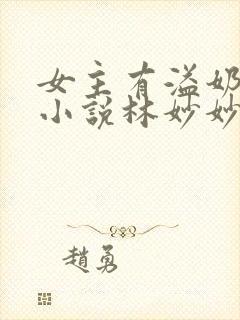 女主有溢奶
小說林妙妙
趙勇